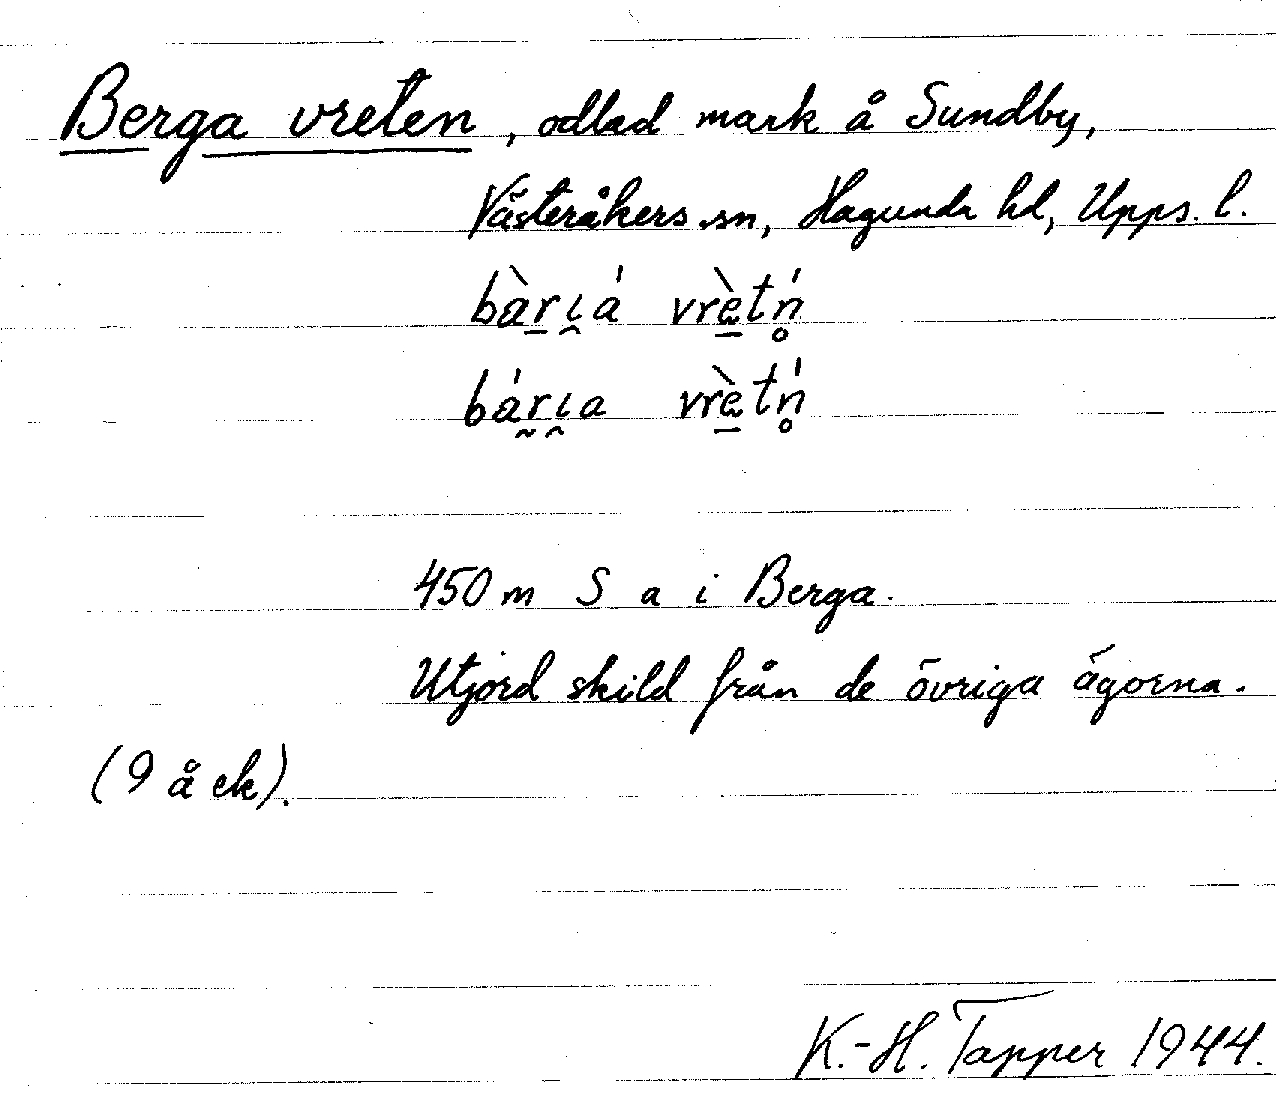 Berga vreten, odlad mark å Sundby,
Västeråkers sn, Hagunda hd, Upps. l.
bàr̲ι̯á vrèt̲ń̥
bár̰ι̯a vrèt̲ń̥
450 m S a i Berga.
Utjord skild från de övriga ägorna.
(9 å ek).
K.-H. Tapper 1944.